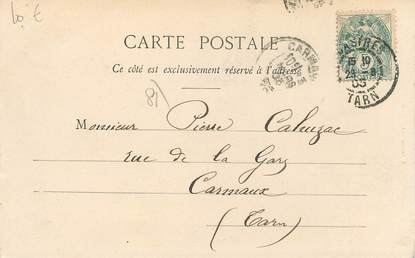 10 €
CARTE POSTALE
Ce côté est exclusivement réservé à l'adresse
CARMAUX
CASTRES
TARN
81
Monsieur Pierre Cahuzac
rue de la Gare
Carmaux
(Tarn)